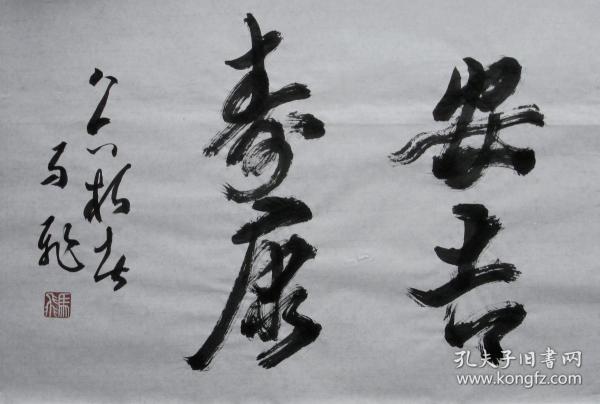 安吉
寿康
马飞
孔夫子旧書网
www.kongfz.com